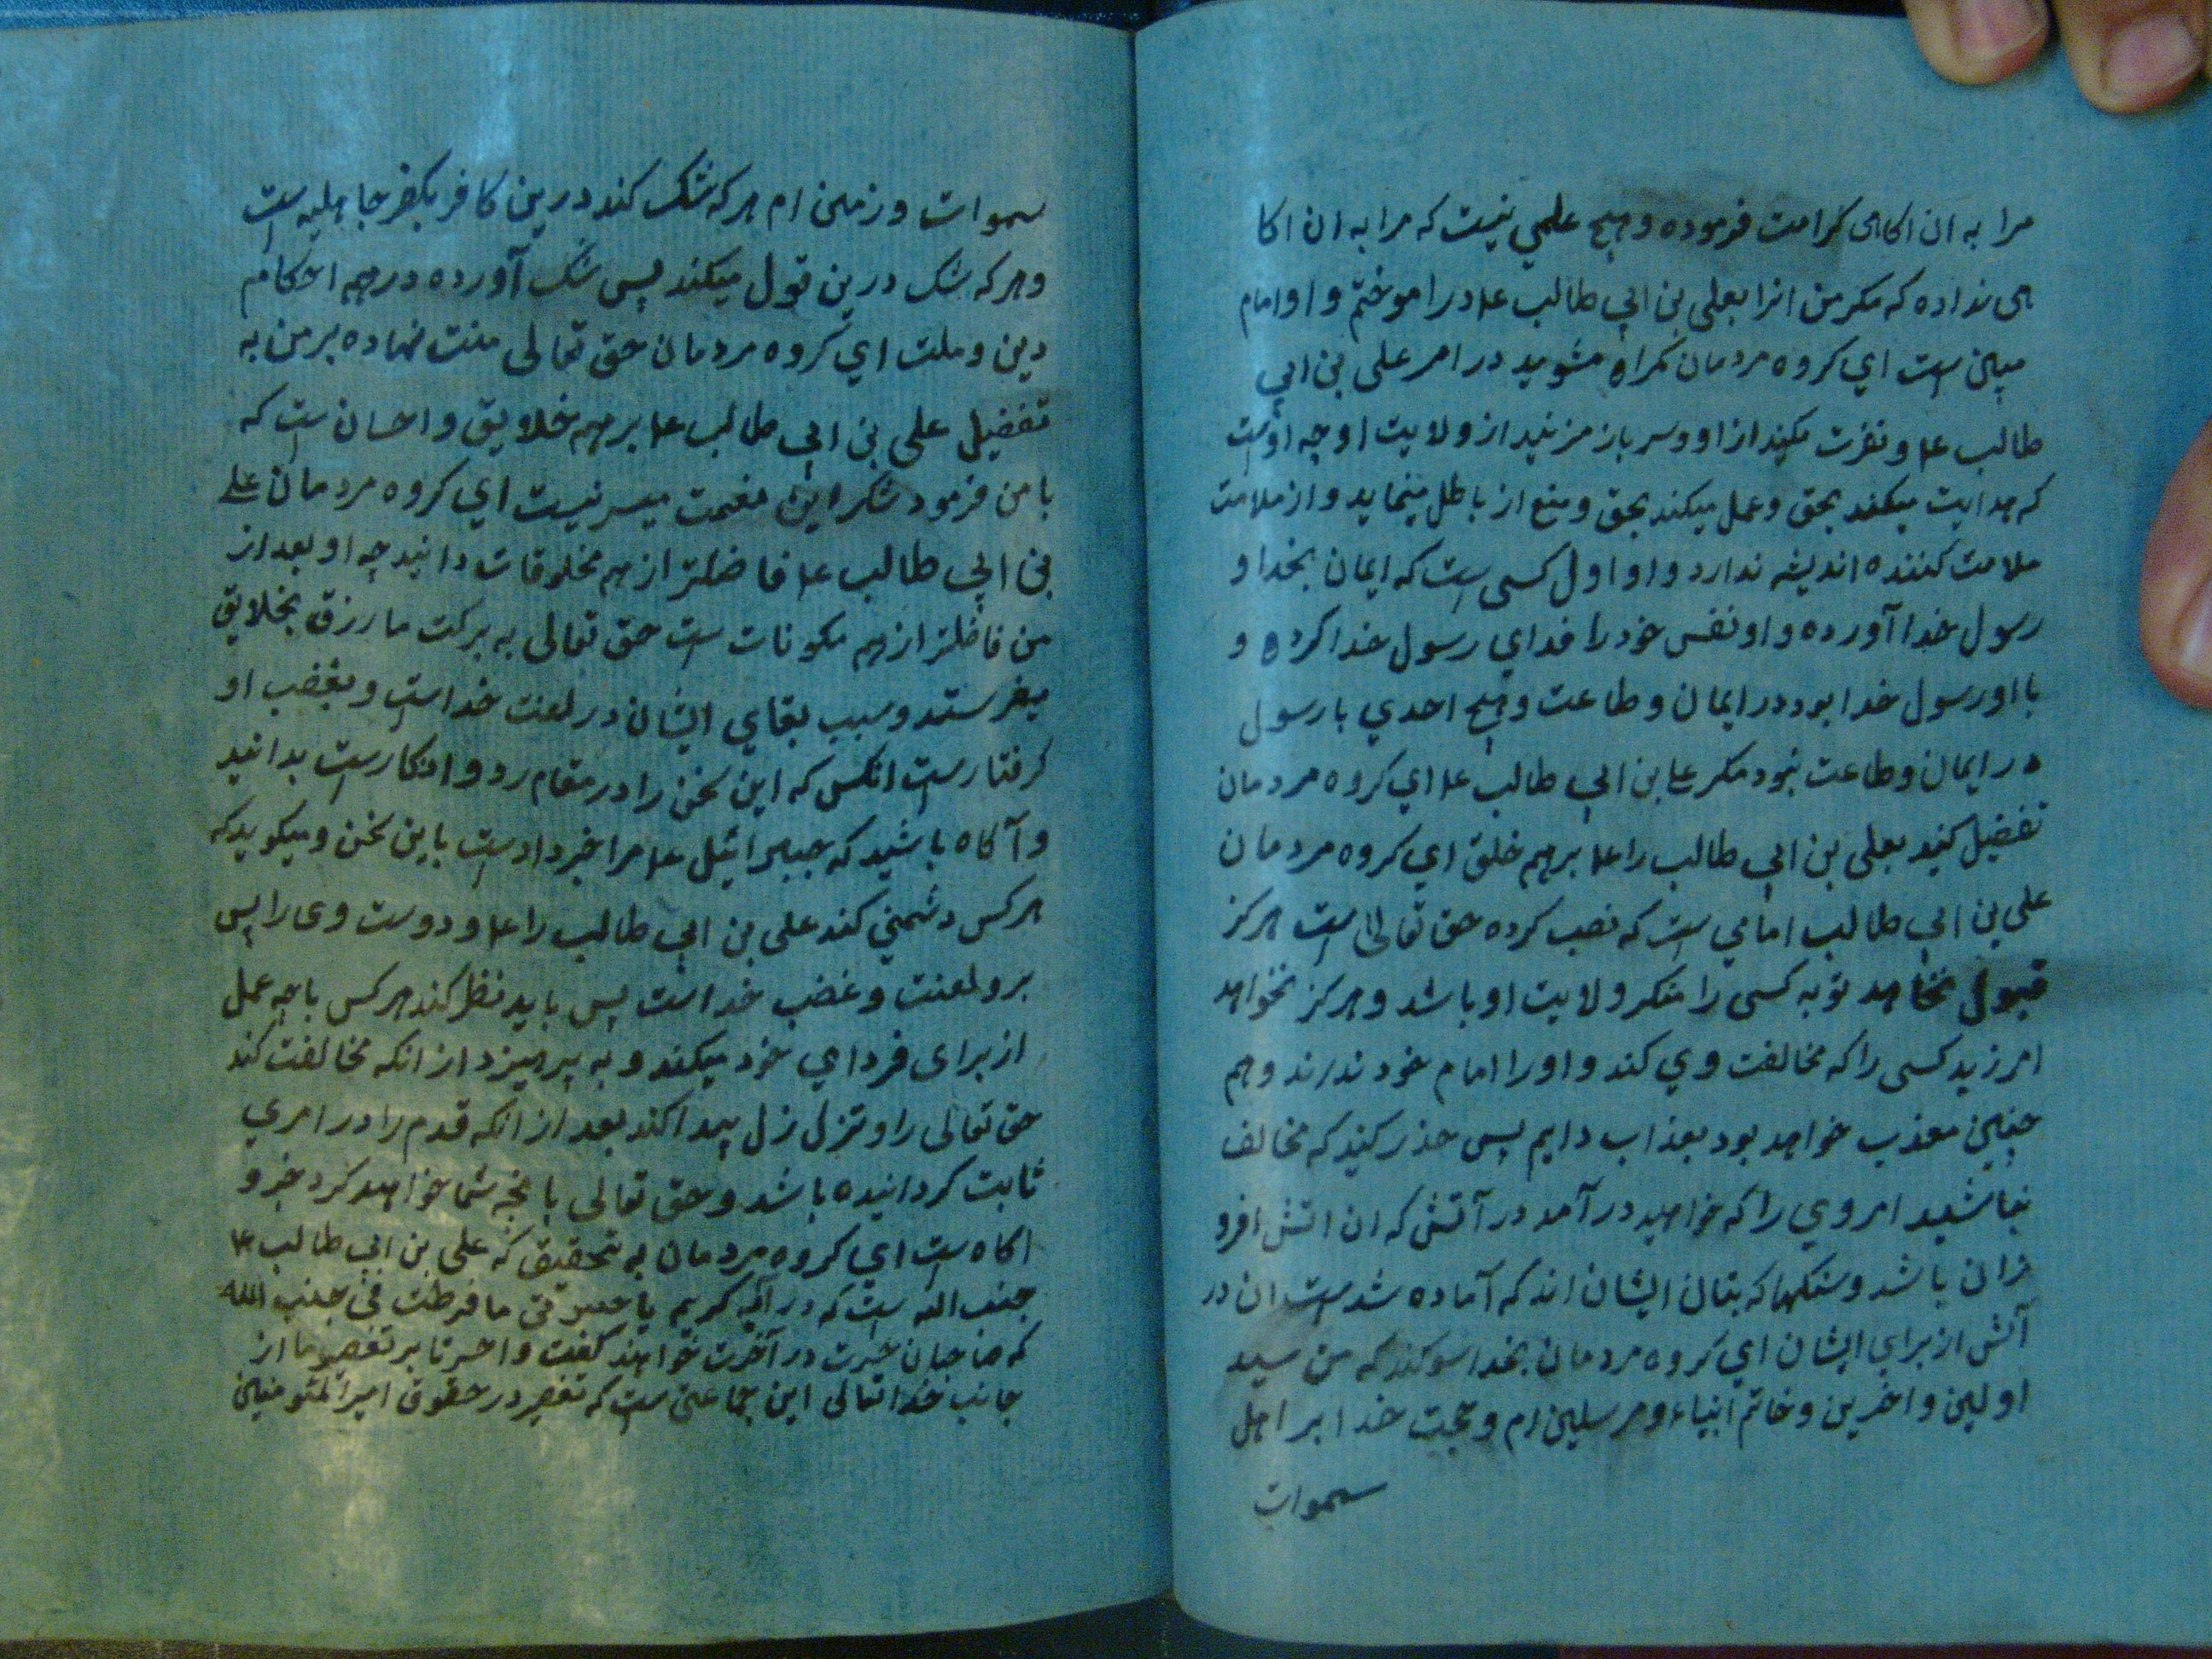 مرا به ان اکاهی کرامت فرموده و هیچ علمی نیست که مرا به ان اکا
هی نداده که مکر من انرا بعلی بن ابی طالب ع‌ا در اموختم و او امام
مبین است ای کروه مردمان کمراه مشوید در امر علی بن ابی
طالب ع‌ا و نفرت مکنید از او و سر باز مزنید از ولایت او چه اوست
که هدایت میکند بحق و عمل میکند بحق و منع از باطل مینماید و از ملامت
ملامت کننده اندیشه ندارد و او اول کسی است که ایمان بخدا و
رسول خدا آورده و او نفس خود را فدای رسول خدا کرده و
با او رسول خدا بود در ایمان و طاعت و هیچ احدی با رسول
در ایمان و طاعت نبود مکر علے بن ابی طالب ع‌ا ای کروه مردمان
تفضیل کنید بعلی بن ابی طالب را ع‌ا بر همه خلق ای کروه مردمان
علی بن ابی طالب امامی است که نصب کرده حق تعالی است هرکز
قبول نخاهد توبه کسی را منکر ولایت او باشد و هرکز نخواهد
امرزید کسی را که مخالفت وی کند و او را امام خود ندارند و هم
چنین معذب خواهد بود بعذاب دایم پس حذر کنید که مخالف
نباشید امروی را که خواهید درآمد در آتش که ان اتش افرو
زان باشد و سنکها که بتان ایشان اند که آماده شد است ان در
آتش از برای ایشان ای کروه مردمان بخدا سوکند که من سید
اولین و اخرین و خاتم انبیاء و مرسلین ام و حجت خدا بر اهل
سموات
سموات و زمین ام هر که شک کند درین کافر بکفر جاهلیه است
و هر که شک درین قول میکند پس شک آورده در همه احکام
دین و ملت ای کروه مردمان حق تعالی منت نهاده بر من به
تفضیل علی بن ابی طالب ع‌ا بر همه خلایق و احسان است که
با من فرمود شکر این نعمت میسر نیست ای کروه مردمان علے
بن ابی طالب ع‌ا فاضلتر از همه مخلوقات دانید چه او بعد از
من فاضلتر از همه مکونات است حق تعالی به برکت ما رزق بخلایق
میفرستد و سبب بقای ایشان در لعنت خداست و بغضب او
کرفتارست انکس که این سخن را در مقام رد و انکارست بدانید
و آکاه باشید که جبرائیل ع‌ا مرا خبر دادست باین سخن و میکوید که
هر کس دشمنی کند علی بن ابی طالب را ع‌ا و دوست وی را پس
برو لعنت و غضب خداست پس باید نظر کند هر کس با چه عمل
از برای فردای خود میکند و به پرهیزد از انکه مخالفت کند
حق تعالی را و تزل زل پیدا کند بعد از انکه قدم را در امری
ثابت کردانیده باشد و حق تعالی بانچه شما خواهید کرد خبر و
اکاه است ای کروه مردمان به تحقیق که علی بن ابی طالب ع‌ا
جنب الله است که در آیه کریم یا حسرتی ما فرطت فی جنب الله
که صاحبان حسرت در آخرت خواهند کفت واحسرتا بر تقصیر ما از
جانب خدا تعالی این جماعتی است که تقصیر در حقوق امیرالمؤمنین